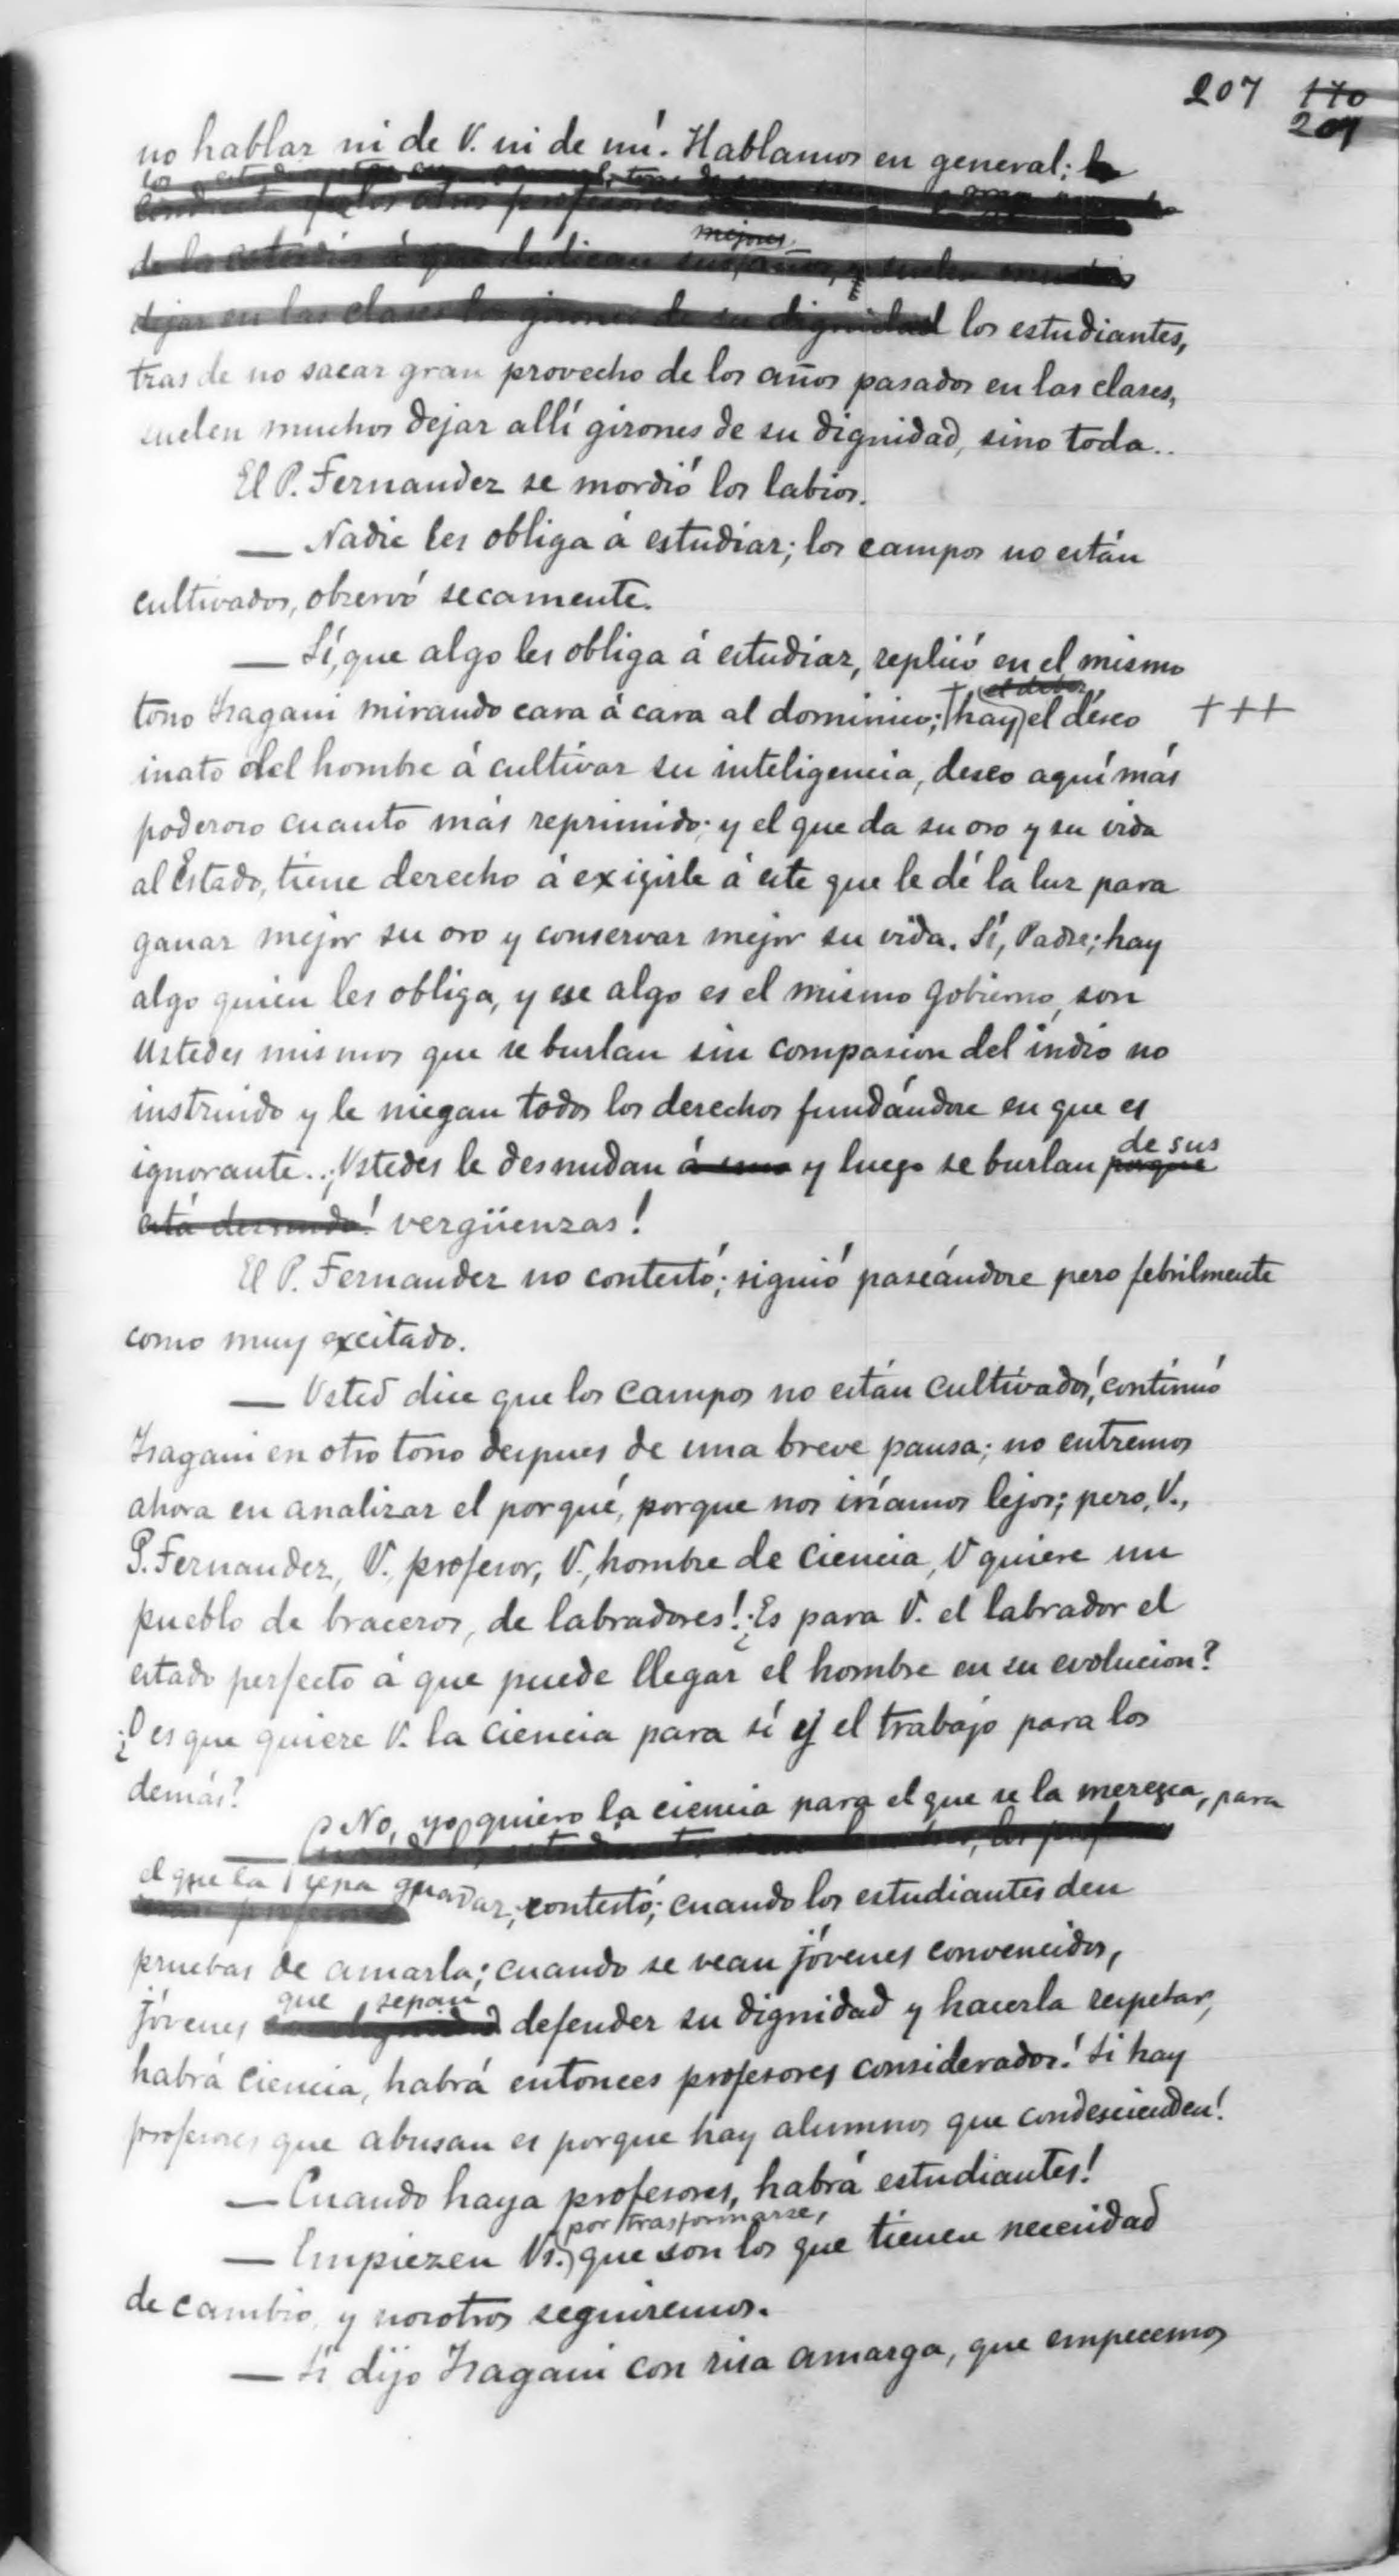 207 170
207
no hablar ni de V. ni de mí. Hablamos en general; la
mejores
de su dignidad los estudiantes,
tras de no sacar gran provecho de los años pasados en las clases,
suelen muchos dejar allí girones de su dignidad, sino toda..
El P. Fernandez se mordió los labios.
— Nadie les obliga á estudiar; los campos no están
cultivados, observó secamente.
— Sí, que algo les obliga á estudiar, replicó en el mismo
el deber,
tono Isagani mirando cara á cara al dominico; hay el deseo +++
inato del hombre á cultivar su inteligencia, deseo aquí más
poderoso cuanto más reprimido; y el que da su oro y su vida
al Estado, tiene derecho á exigirle á este que le dé la luz para
ganar mejor su oro y conservar mejor su vida. Sí, Padre; hay
algo quien les obliga, y ese algo es el mismo Gobierno, son
Ustedes mismos que se burlan sin compasion del indio no
instruido y le niegan todos los derechos fundándose en que es
ignorante.. ¡Ustedes le desnudan y luego se burlan porque de sus
está desnudo! vergüenzas!
El P. Fernandez no contestó; siguió paseándose pero febrilmente
como muy excitado.
— Usted dice que los campos no están cultivados! continuó
Isagani en otro tono despues de una breve pausa; no entremos
ahora en analizar el porqué, porque nos iríamos lejos; pero, V.,
P. Fernandez, V., profesor, V., hombre de ciencia, V quiere un
pueblo de braceros, de labradores! ¿Es para V. el labrador el
estado perfecto á que puede llegar el hombre en su evolucion?
¿O es que quiere V. la ciencia para sí y el trabajo para los
demás?
— No, yo quiero la ciencia para el que se la merezca, para
el que la sepa guardar, contestó; cuando los estudiantes den
pruebas de amarla; cuando se vean jóvenes convencidos,
jóvenes que sepan defender su dignidad y hacerla respetar,
habrá ciencia, habrá entonces profesores considerados! Si hay
profesores que abusan es porque hay alumnos que condescienden!
— Cuando haya profesores, habrá estudiantes!
por trasformarse,
— Empiezen Vs. que son los que tienen necesidad
de cambio, y nosotros seguiremos.
— Sí dijo Isagani con risa amarga, que empecemos